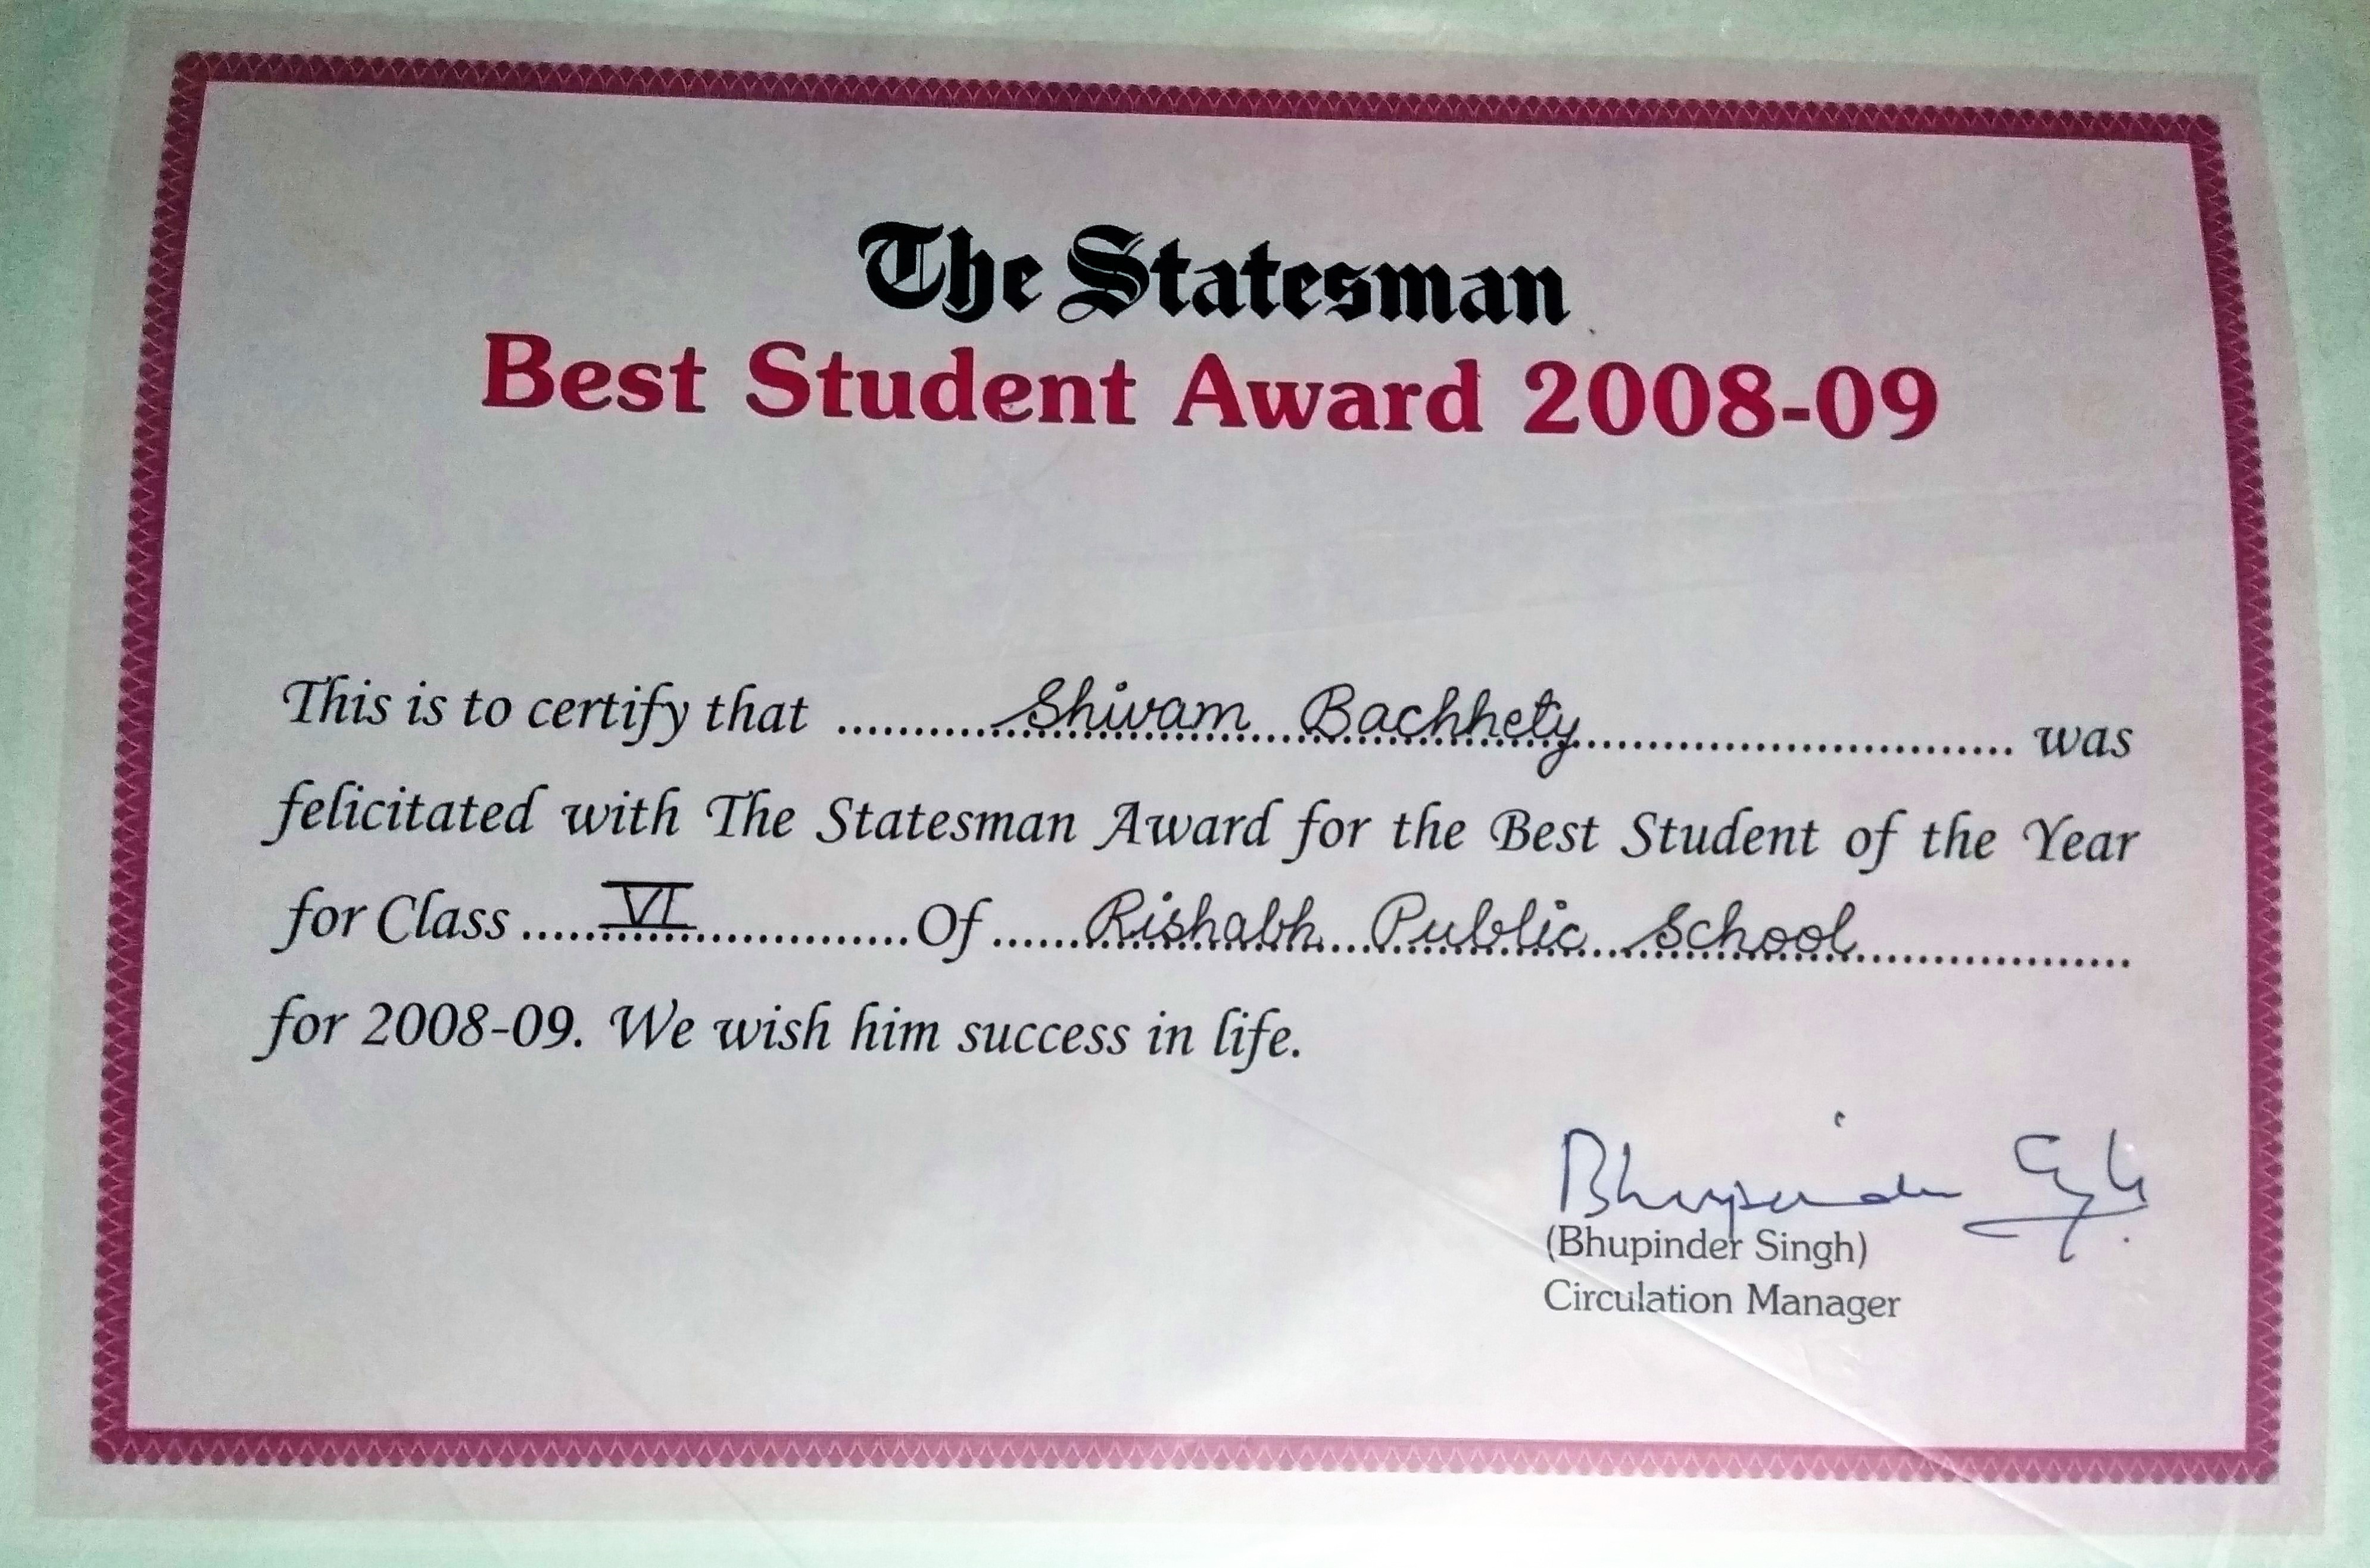 The Statesman
Best Student Award 2008-09
This is to certify that .......... Shivam Bachhety .......... was
felicitated with The Statesman Award for the Best Student of the Year
for Class ..... VI .......... Of ...... Rishabh Public School ..........
for 2008-09. We wish him success in life.
Bhupinder Singh
(Bhupinder Singh)
Circulation Manager